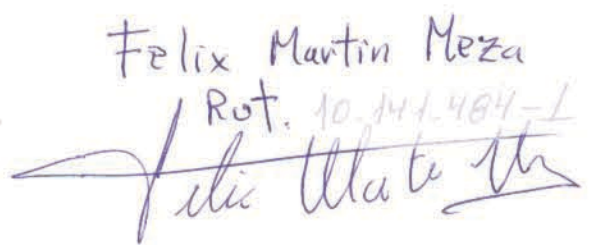 Felix Martin Meza
Rut. 10.141.484-1
Felix